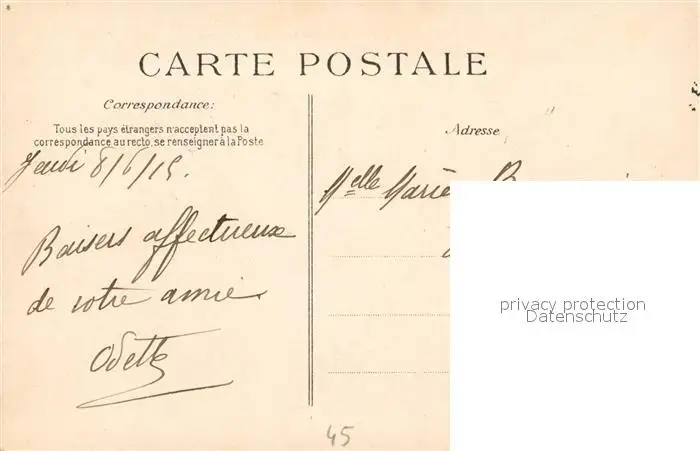 CARTE POSTALE
Correspondance:
Tous les pays étrangers n'acceptent pas la
correspondance au recto, se renseigner à la Poste
Adresse
Jeudi 8/6/15.
Melle Marie
Baisers affectueux
de votre amie
Odette
privacy protection
Datenschutz
45